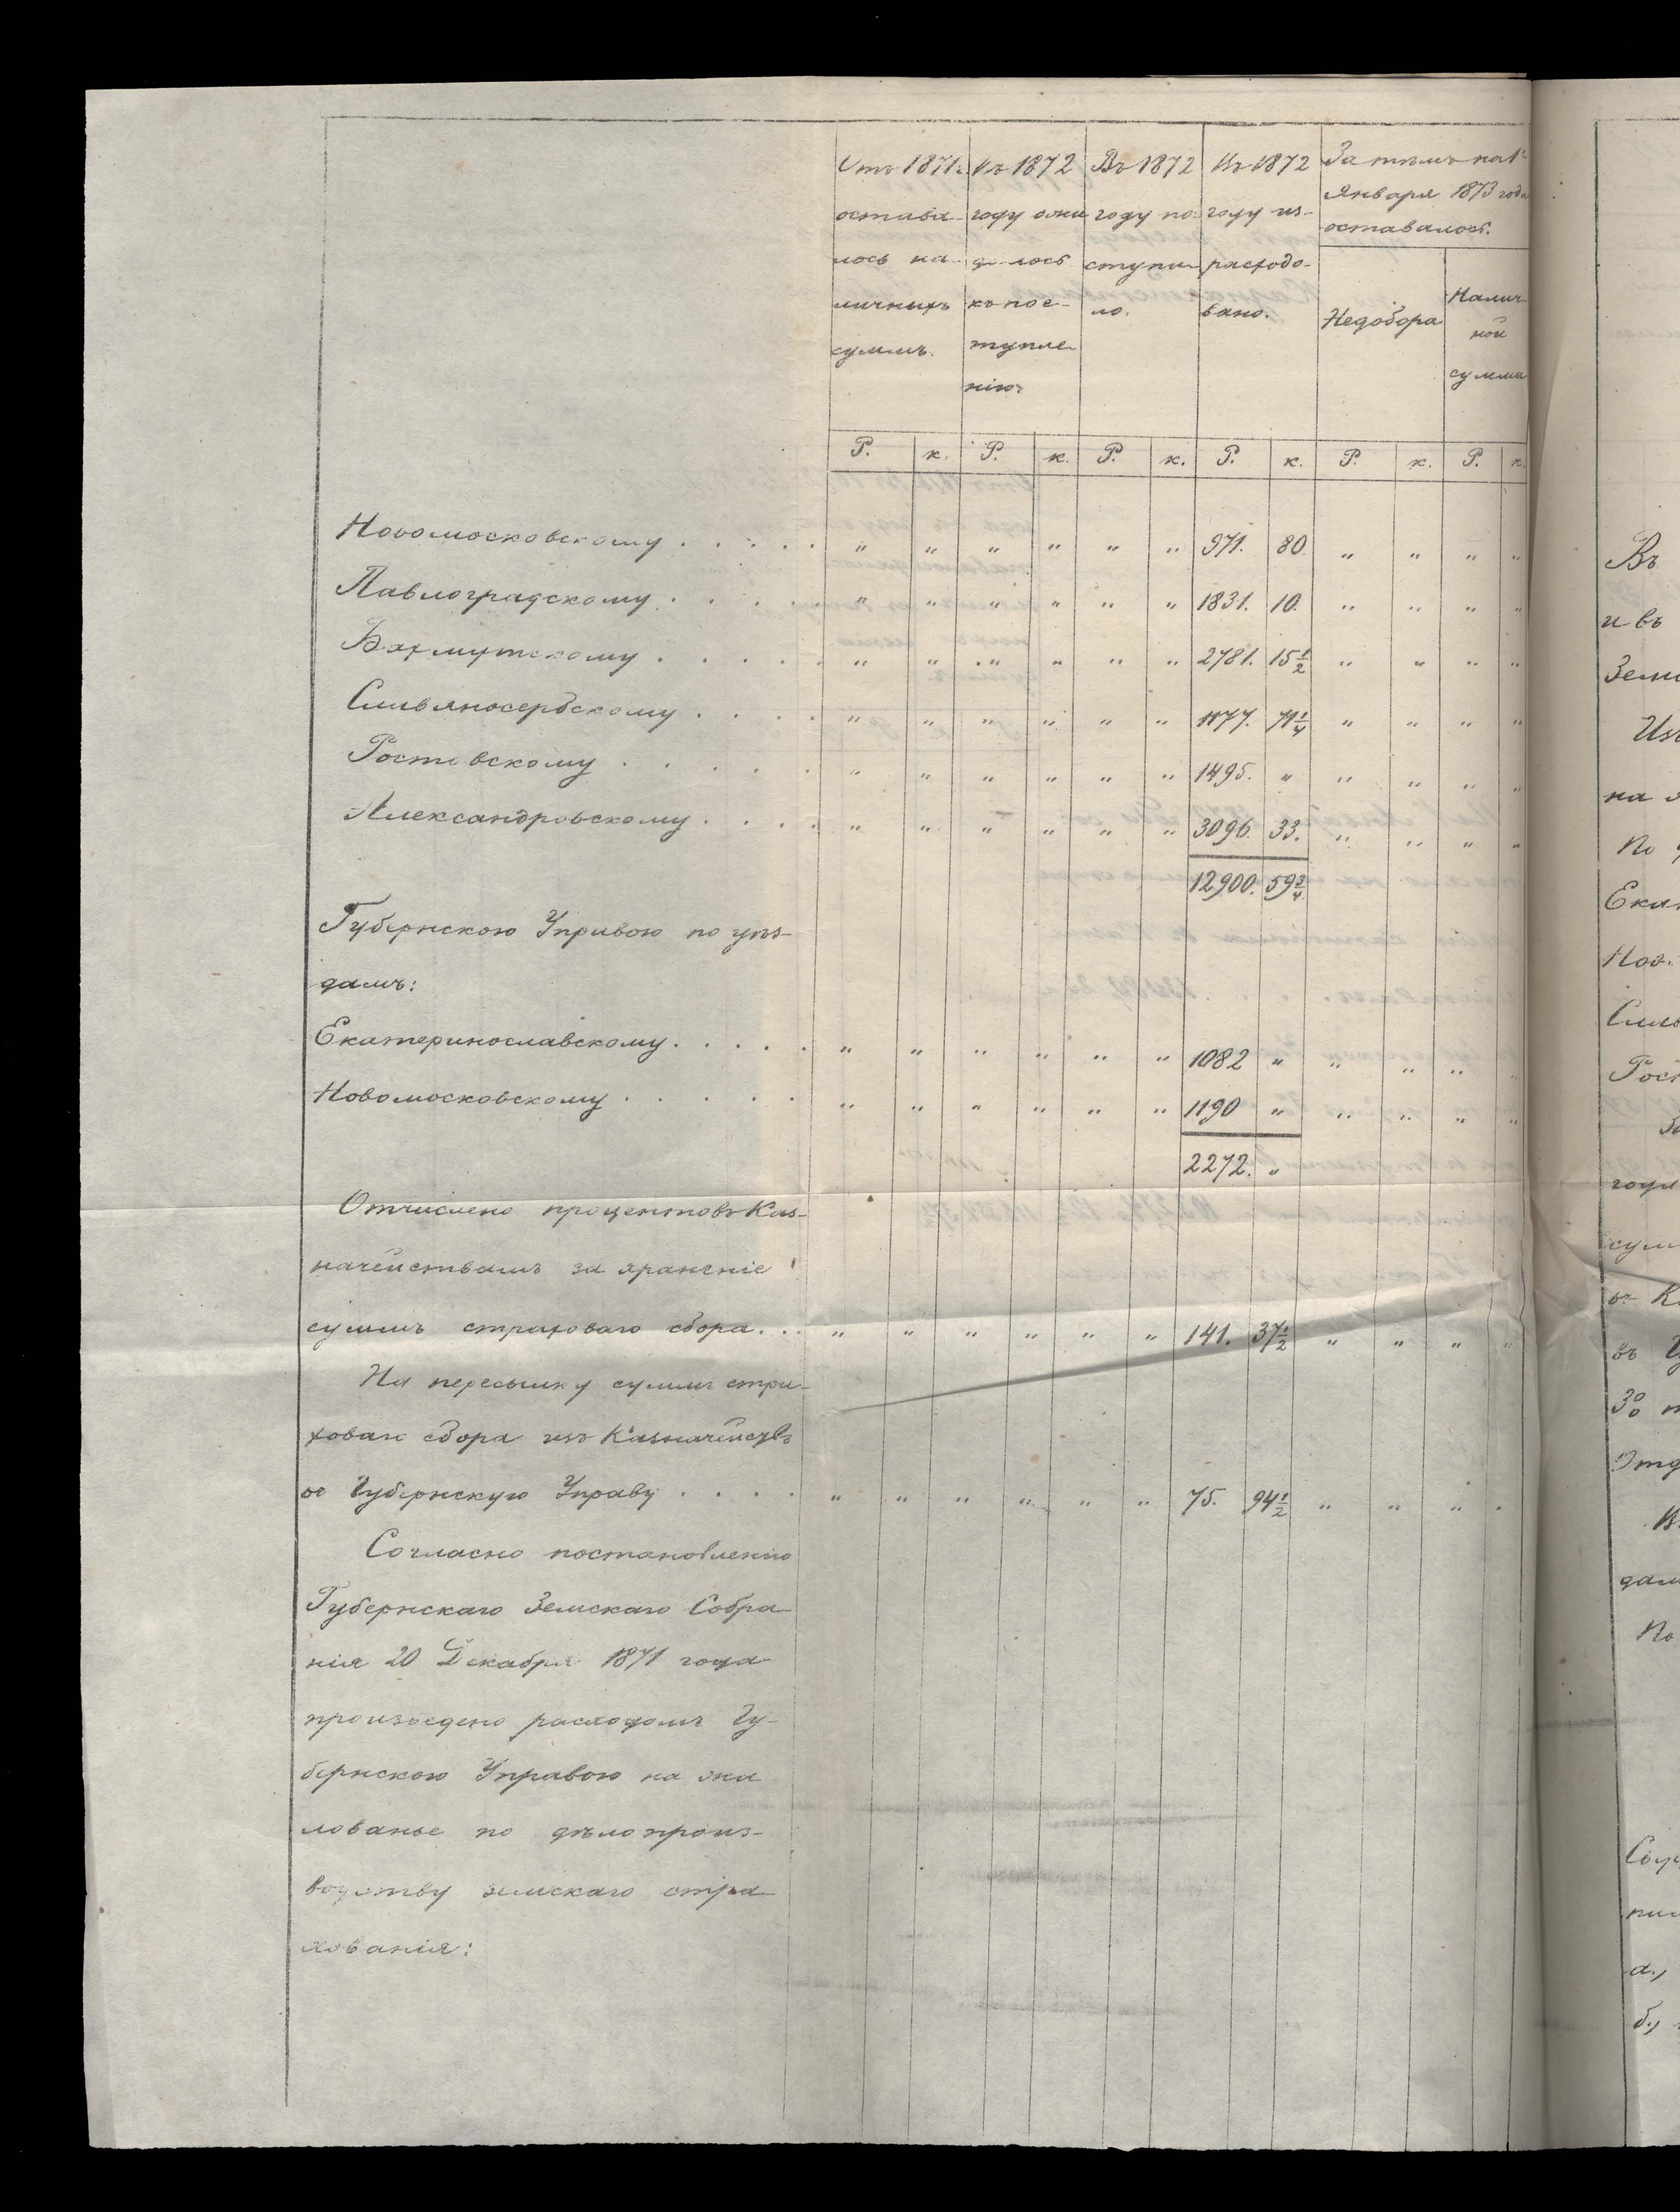 Отъ 1871 г. остава- лось на- личныхъ суммъ.
Въ 1872 году ожи- далось къ пос- тупле- нію:
Въ 1872 году по- ступи- ло.
Въ 1872 году из- расходо- вано.
За тѣмъ на 1е Января 1873 года оставалось.
Недобора
Налич- ной сумма
Р. к. Р. к. Р. к. Р. к. Р. к. Р. к.
Новомосковскому . . . . . " " " " " " 971. 80. " " " "
Павлоградскому . . . . . " " " " " " 1831. 10. " " " "
Бахмутскому . . . . . " " " " " " 2781. 15 1/2 " " " "
Славяносербскому . . . . " " " " " " 71 1/4 " " " "
Ростовскому . . . . . " " " " " " 1495. " " " " "
Александровскому . . . . " " " " " " 3096. 33. " " " "
12900. 59 3/4
Губернскою Управою по уѣз-
дамъ:
Екатеринославскому . . . . . " " " " " " 1082 " " " " "
Новомосковскому . . . . . " " " " " " 1190 " " " " "
2272. "
Отчислено процентовъ Каз-
начействамъ за храненіе
суммъ страховаго сбора . . . " " " " " " 141. 37 1/2 " " " "
На пересылку суммъ стра-
ховаго сбора изъ Казначействъ
въ Губернскую Управу . . . . " " " " " " 75. 94 1/2 " " " "
Согласно постановленію
Губернскаго Земскаго Собра-
нія 20 Декабря 1871 года
произведено расходомъ Гу-
бернскою Управою на жа-
лованье по дѣлопроиз-
водству земскаго стра-
хованія:
Въ
и въ
на
По
въ
въ
3%
По
а.,
б.,